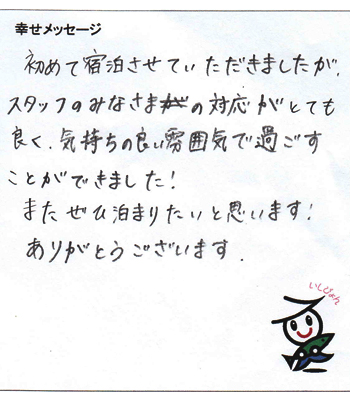 幸せメッセージ
初めて宿泊させていただきましたが、
スタッフのみなさまの対応がとても
良く、気持ちの良い雰囲気で過ごす
ことができました!
またぜひ泊まりたいと思います!
ありがとうございます.
いしぴょん